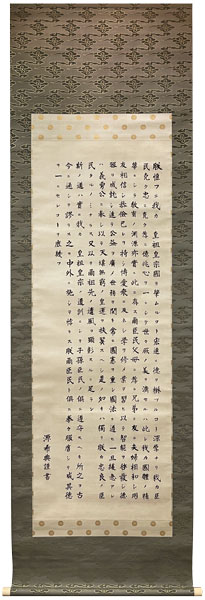 朕惟フニ我カ皇祖皇宗國ヲ肇ムルコト宏遠ニ德ヲ樹ツルコト深厚ナリ我カ臣
民克ク忠ニ克ク孝ニ億兆心ヲ一ニシテ世々厥ノ美ヲ濟セルハ此レ我カ國體ノ精
華ニシテ教育ノ淵源亦實ニ此ニ存ス爾臣民父母ニ孝ニ兄弟ニ友ニ夫婦相和シ朋
友相信シ恭儉己レヲ持シ博愛衆ニ及ホシ學ヲ修メ業ヲ習ヒ以テ智能ヲ啓發シ德
器ヲ成就シ進テ公益ヲ廣メ世務ヲ開キ常ニ國憲ヲ重シ國法ニ遵ヒ一旦緩急アレ
ハ義勇公ニ奉シ以テ天壤無窮ノ皇運ヲ扶翼スヘシ是ノ如キハ獨リ朕カ忠良ノ臣
民タルノミナラス又以テ爾祖先ノ遺風ヲ顯彰スルニ足ラン
斯ノ道ハ實ニ我カ皇祖皇宗ノ遺訓ニシテ子孫臣民ノ俱ニ遵守スヘキ所之ヲ古
今ニ通シテ謬ラス之ヲ中外ニ施シテ悖ラス朕爾臣民ト俱ニ拳々服膺シテ咸其德
ヲ一ニセンコトヲ庶幾フ
源希典謹書